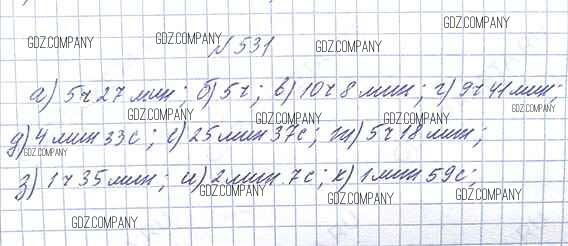 GDZ.COMPANY
№531 GDZ.COMPANY GDZ.COMPANY GDZ.COMPANY
а) 5ч 27 мин; б) 5ч; в) 10ч 8 мин; г) 9ч 41 мин;
GDZ.COMPANY GDZ.COMPANY GDZ.COMPANY
д) 4 мин 33с; е) 25 мин 37с; ж) 5ч 18 мин;
GDZ.COMPANY
з) 1ч 35 мин; и) 2 мин 7с; к) 1 мин 59с;
GDZ.COMPANY GDZ.COMPANY GDZ.COMPANY
GDZ.COMPANY